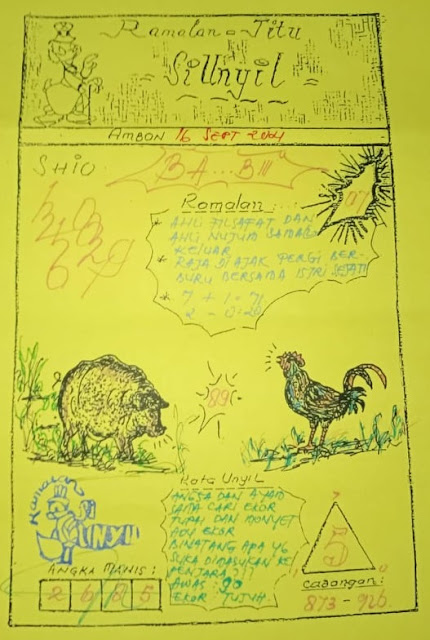 Ramalan - Jitu
Si Unyil
AMBON 16 SEPT 2004
SHIO
BA...BI!!
Ramalan :
* AHLI FILSAFAT DAN
AHLI NUJUM
KELUAR
* RAJA DI AJAK PERGI BER-
BURU BERSAMA ISTRI SEJATI
* 7 + 1 = 71
89
Ramalan
Si
UNYIL
Kata Unyil
ANGSA DAN AYAM
SAMA CARI EKOR
TUPAI DAN MONYET
ADU EKOR
BINATANG APA YG
SUKA DIMASUKAN KE
PENJARA ???
AWAS 90
EKOR TUJUH.
ANGKA MANIS :
2 6 8 5
Cadangan :
873 - 926